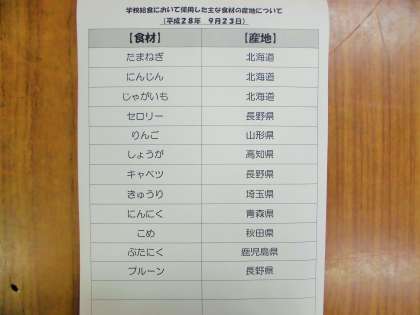 学校給食において使用した主な食材の産地について
(平成28年 9月23日)
【食材】 【産地】
たまねぎ 北海道
にんじん 北海道
じゃがいも 北海道
セロリー 長野県
りんご 山形県
しょうが 高知県
キャベツ 長野県
きゅうり 埼玉県
にんにく 青森県
こめ 秋田県
ぶたにく 鹿児島県
プルーン 長野県